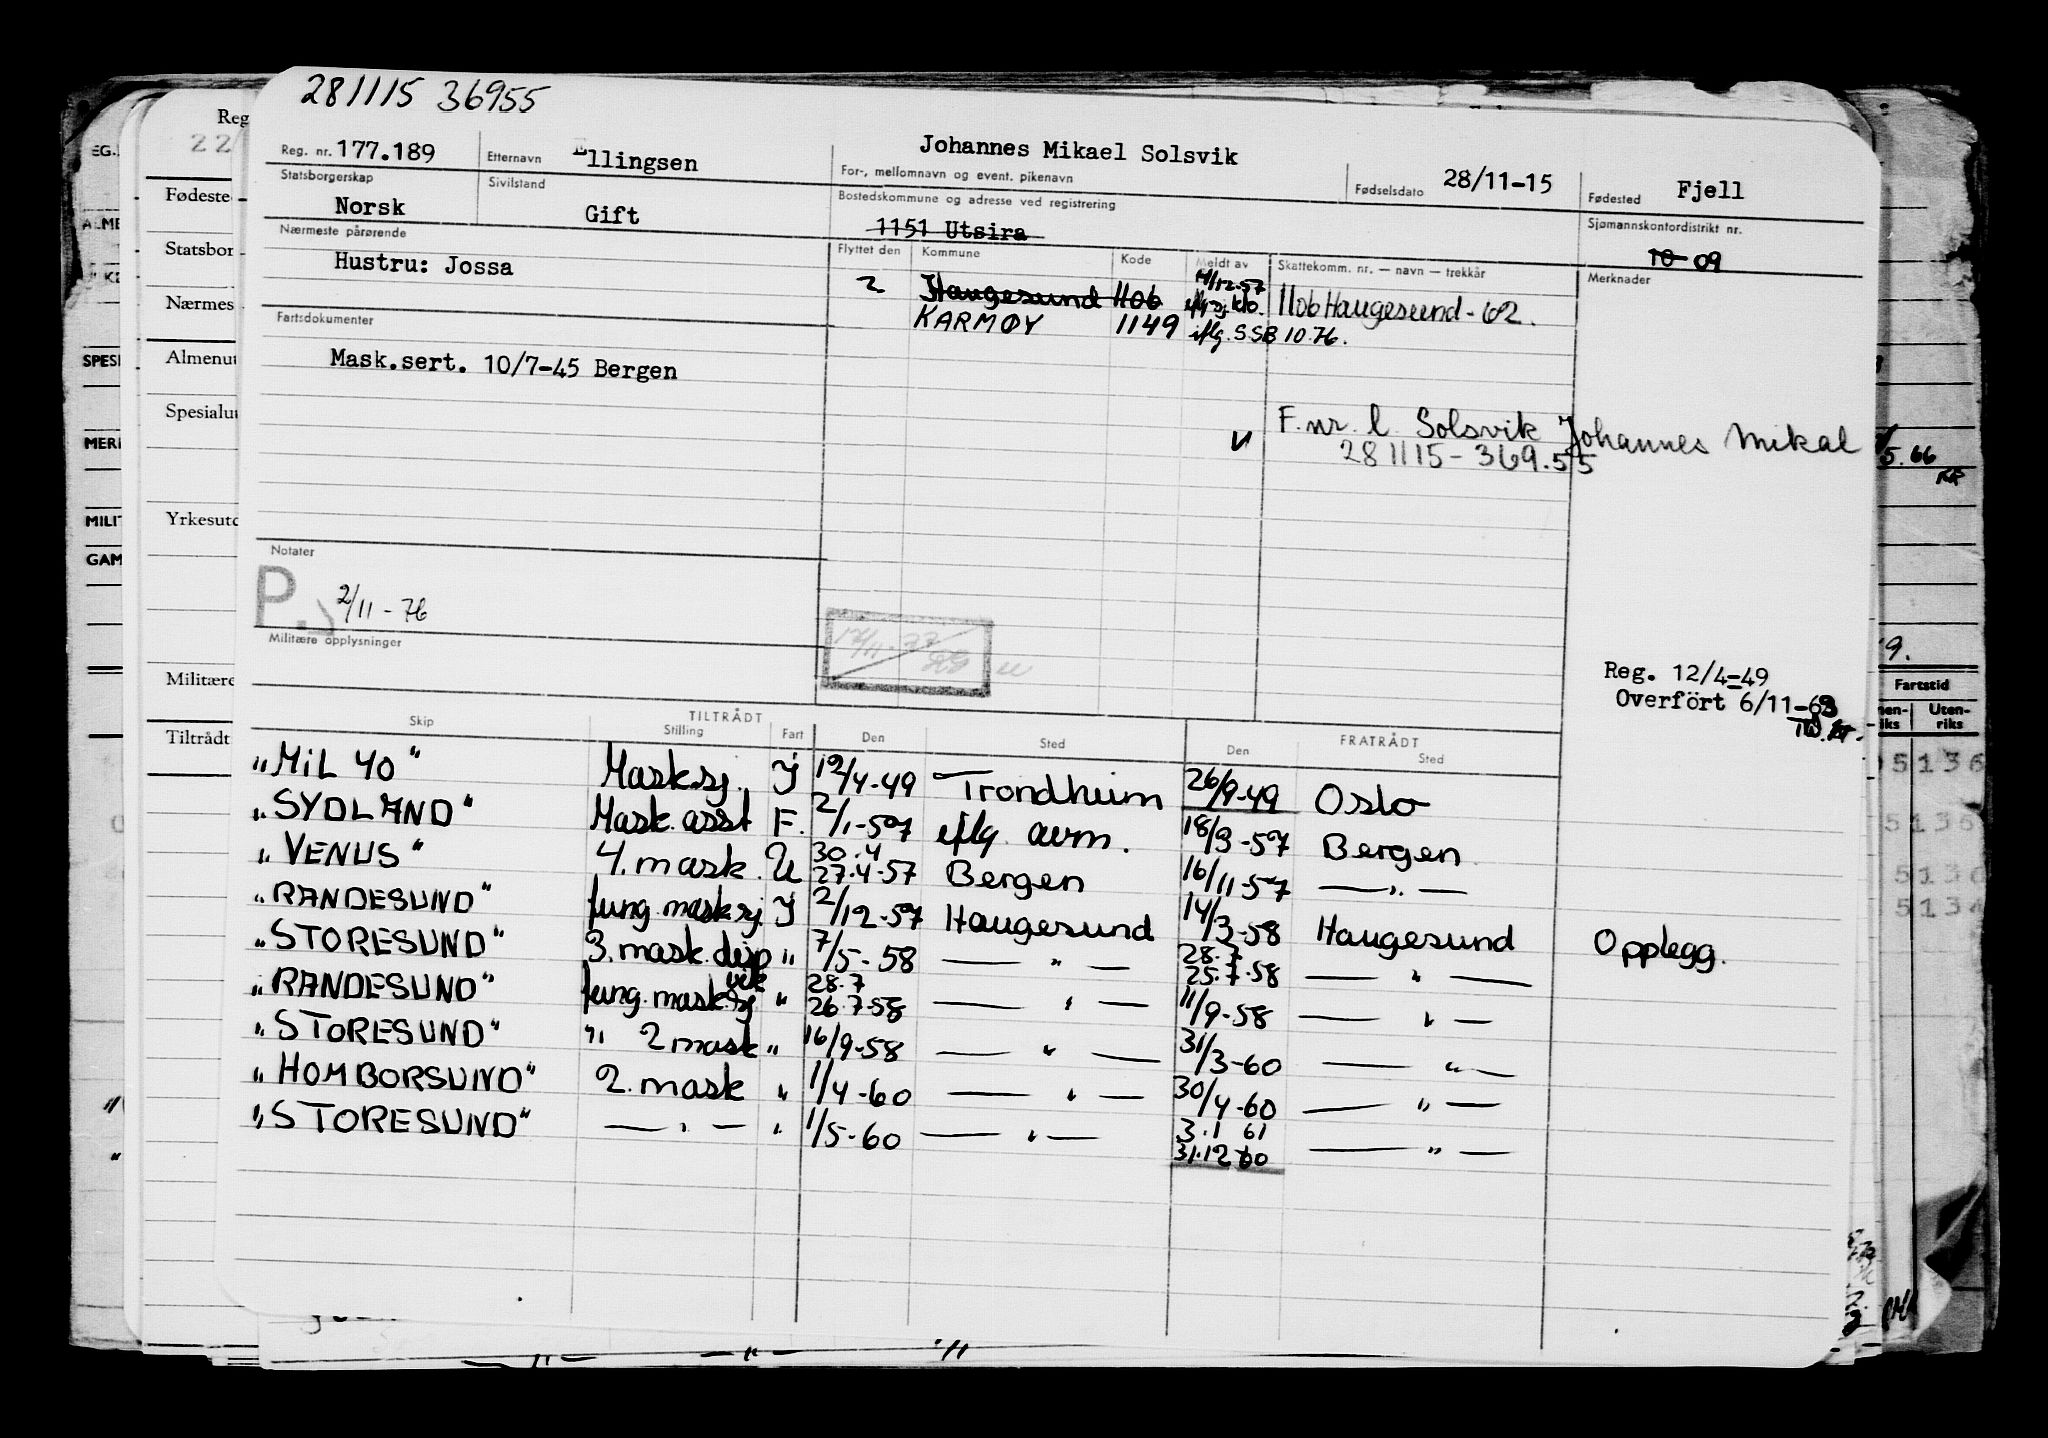 281115 36955
Reg. nr. 177.189 Etternavn Ellingsen Johannes Mikael Solsvik For-, mellomnavn og event. pikenavn Fødselsdato 28/11-15 Fødested Fjell
Statsborgerskap Norsk Sivilstand Gift Bostedskommune og adresse ved registrering 1151 Utsira Sjømannskontordistrikt nr. 10 09
Nærmeste pårørende Flyttet den Kommune Kode Meldt av Skattekomm. nr. — navn — trekkår Merknader
Hustru: Jossa 2 Haugesund 1106 1106 Haugesund - 62.
Fartsdokumenter KARMØY 1149 iflg. SSB 10.76.
Mask.sert. 10/7-45 Bergen
F.nr. l. Solsvik Johannes Mikal
281115-369.55
Notater
P. 2/11-76
Militære opplysninger
Reg. 12/4-49
Overfört 6/11-63
Skip TILTRÅDT Stilling Fart Den Sted FRATRÅDT Den Sted
"MIL 40" Masksj. J 12/4-49 Trondheim 26/9-49 Oslo
"SYDLAND" Mask. asst F. 2/1-57 iflg. avm. 18/3-57 Bergen
"VENUS" 4. mask. U 30.4 27.4-57 Bergen 16/11-57 — " —
"RANDESUND" fung. masksj. J 2/12-57 Haugesund 14/3-58 Haugesund Opplegg.
"STORESUND" 3. mask. disp " 7/5-58 — " — 28.7 25.7-58 — " —
"RANDESUND" fung. masksj vik " 28.7 26.7-58 — " — 11/9-58 — " —
"STORESUND" " 2 mask " 16/9-58 — " — 31/3-60 — " —
"HOMBORSUND" 2. mask " 1/4-60 — " — 30/4-60 — " —
"STORESUND" — " — " 1/5-60 — " — 3.1 61 31.12 60 — " —
Reg
22
Fødeste
Statsbor
Nærmes
Almenut
Spesialu
Yrkesutd
Militære
Tiltrådt
EG.
ALME
SPESI
MERI
MILIT
GAM
5.66
9.
Fartstid
Uten-
riks
5136
5136
5136
5134